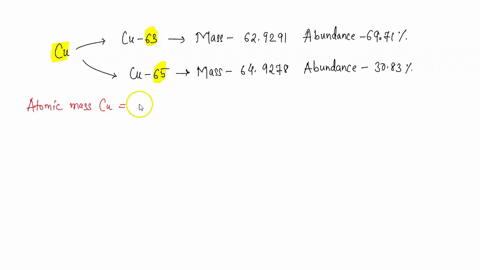 Cu-63 → Mass- 62.9291 Abundance-69.71%.
Cu
Cu-65 → Mass- 64.9278 Abundance- 30.83%.
Atomic mass Cu =